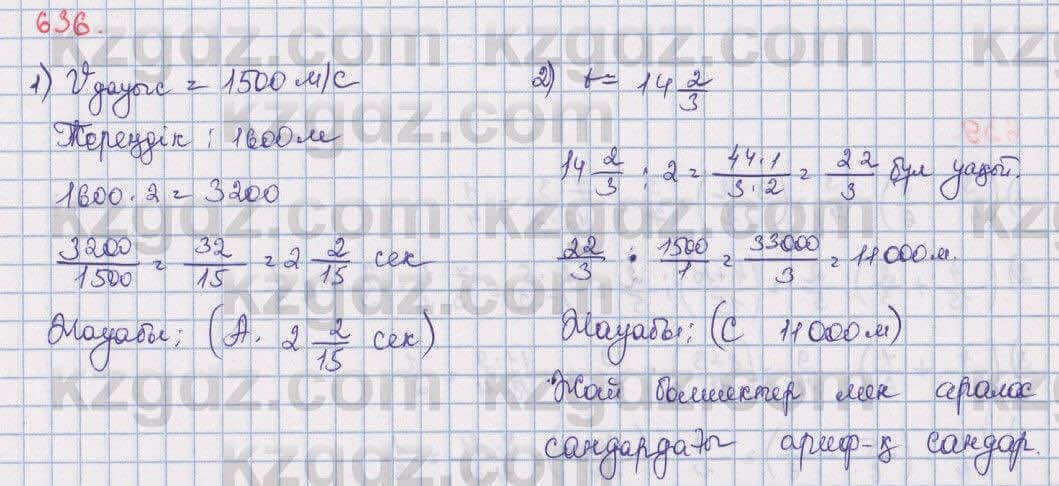 636.
1) V дауыс = 1500 м/с
Тереңдік : 1600 м
1600 · 2 = 3200
3200/1500 = 32/15 = 2 2/15 сек
Жауабы; (А. 2 2/15 сек)
2) t = 14 2/3
14 2/3 : 2 = 44·1/3·2 = 22/3 бұл уақыт.
22/3 · 1500/1 = 33000/3 = 11000 м.
Жауабы: (С 11000 м)
Жай бөлшектер мен аралас
сандардағы ариф-қ сандар.
kzgdz.com